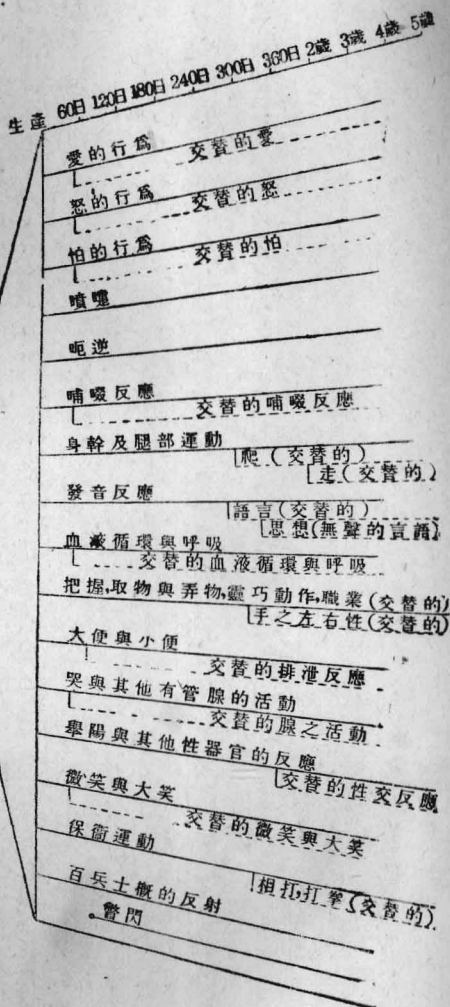 生產 60日 120日 180日 240日 300日 360日 2歲 3歲 4歲 5歲
愛的行爲 交替的愛
怒的行爲 交替的怒
怕的行爲 交替的怕
噴嚏
呃逆
哺啜反應
交替的哺啜反應
身幹及腿部運動
爬(交替的)
走(交替的)
發音反應
語言(交替的)
思想(無聲的言語)
血液循環與呼吸
交替的血液循環與呼吸
把握,取物與弄物,靈巧動作,職業(交替的)
手之左右性(交替的)
大便與小便
交替的排泄反應
哭與其他有管腺的活動
交替的腺之活動
舉陽與其他性器官的反應
交替的性交反應
微笑與大笑
交替的微笑與大笑
保衞運動
相打,打拳(交替的)
百兵士概的反射
瞥閃